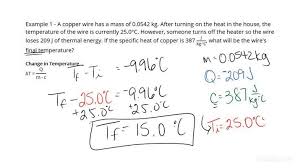 Example 1 - A copper wire has a mass of 0.0542 kg. After turning on the heat in the house, the
temperature of the wire is currently 25.0°C. However, someone turns off the heater so the wire
loses 209 J of thermal energy. If the specific heat of copper is 387 J/kg·°C, what will be the wire's
final temperature?
Change in Temperature
ΔT = Q/m·c
Tf - Ti = -9.96°C
Tf - 25.0°C = -9.96°C
+25.0°C +25.0°C
Tf = 15.0 °C
m = 0.0542kg
Q = -209J
c = 387 J/kg·°C
Ti = 25.0°C